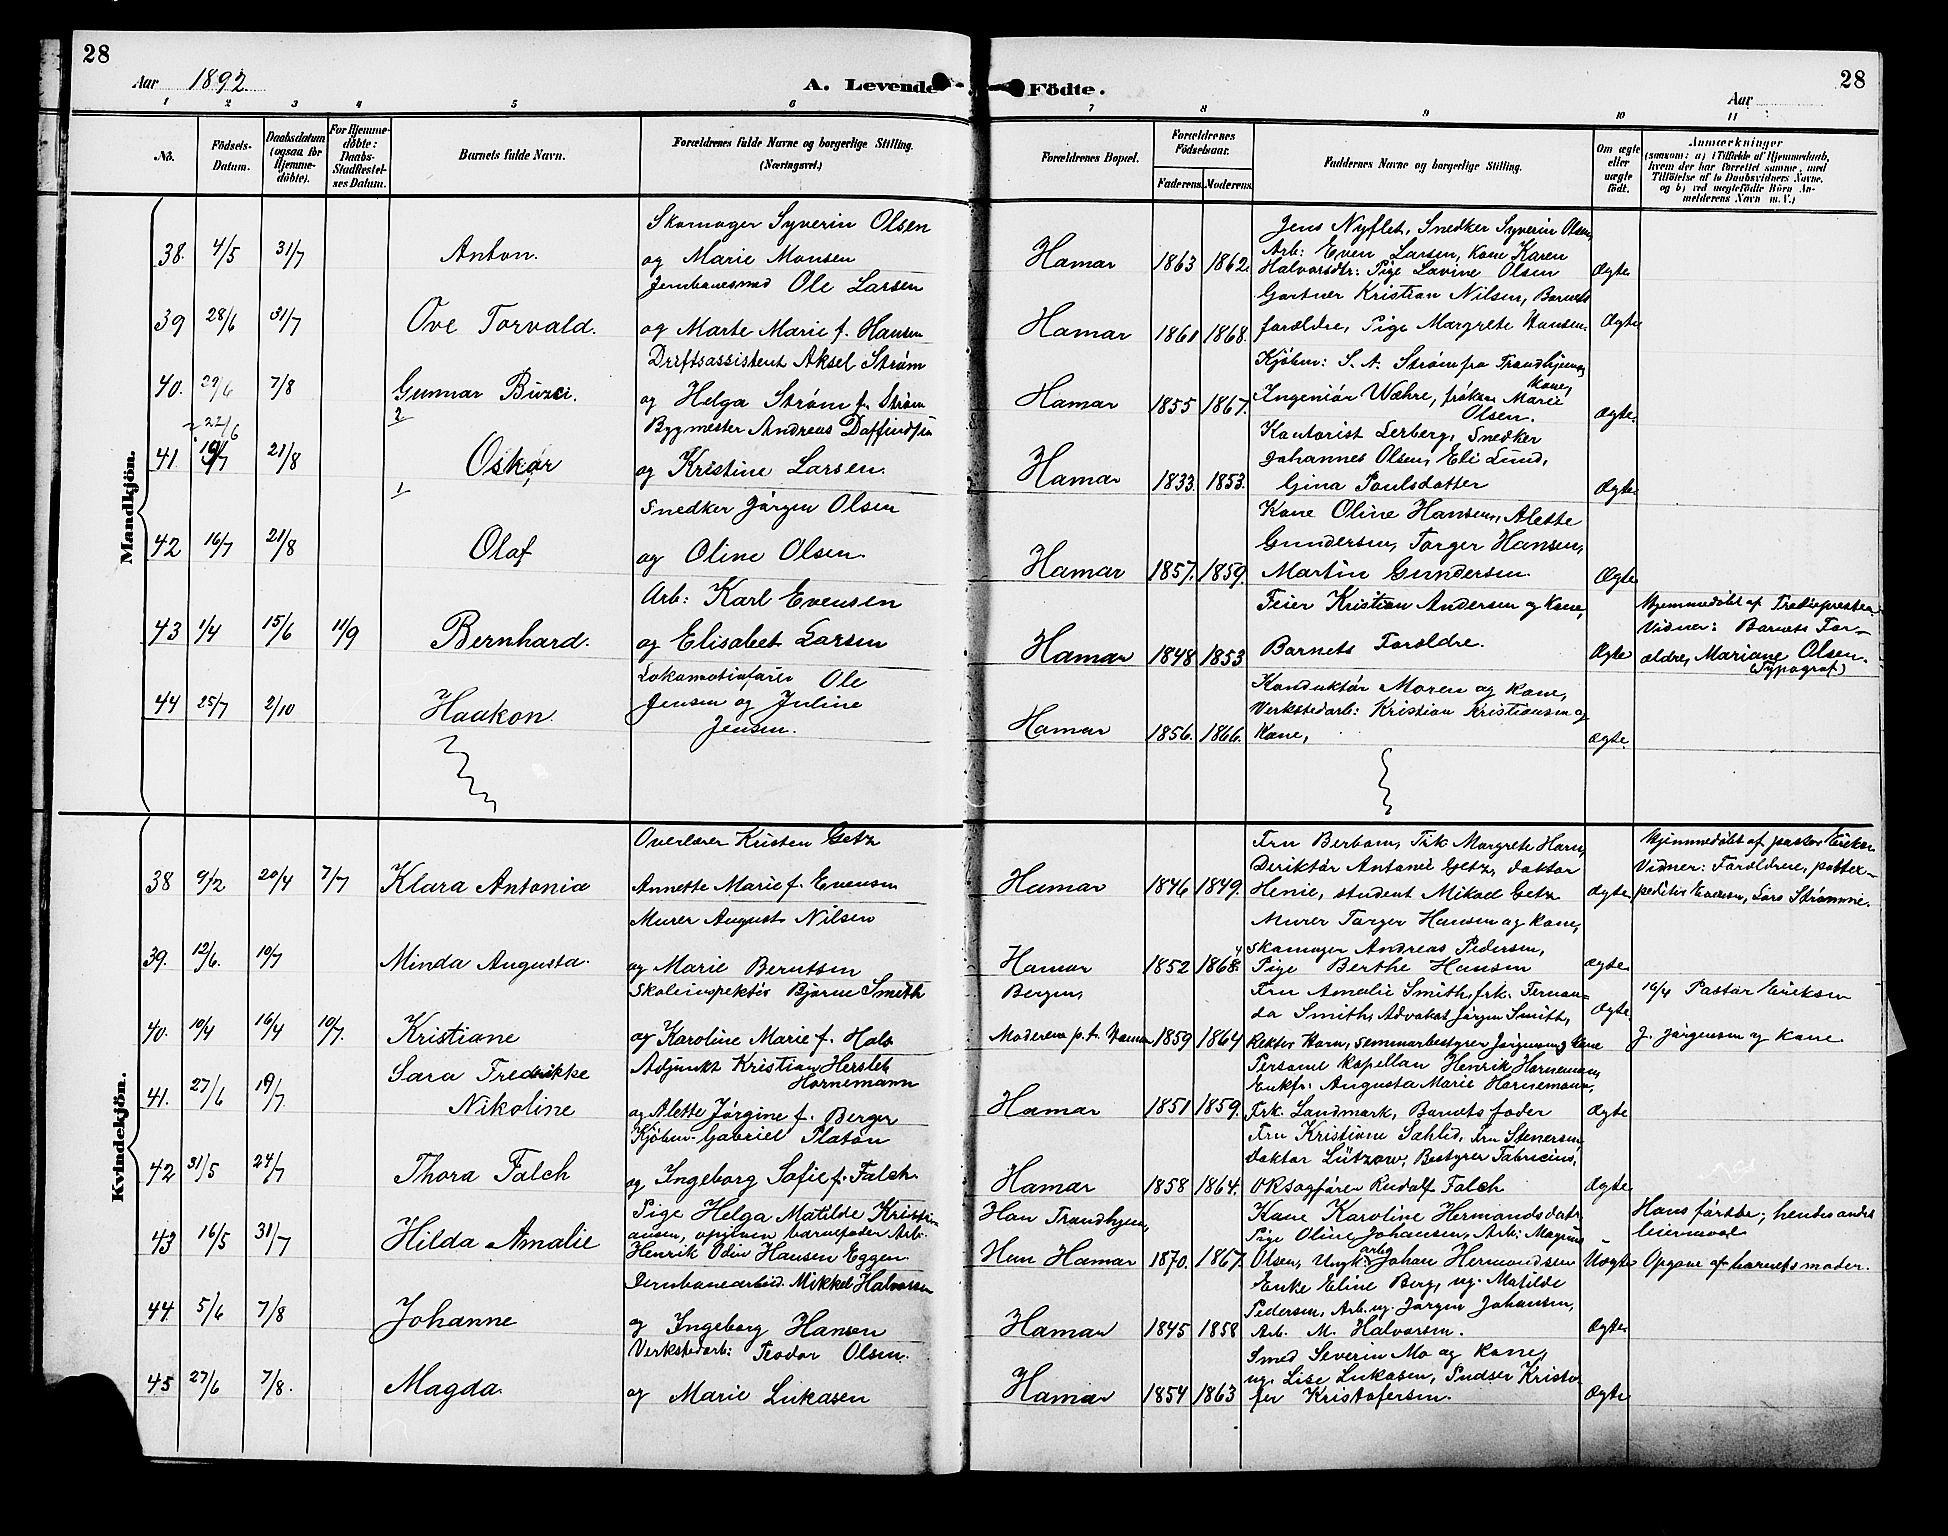 28
28
Aar 1892.
A. Levende Födte.
Aar
1 2 3 4 5 6 7 8 9 10 11
No.
Födsels-Datum.
Daabsdatum (ogsaa for Hjemme-döbte).
For Hjemme-döbte: Daabs-Stadfæstel-ses Datum.
Barnets fulde Navn.
Forældrenes fulde Navne og borgerlige Stilling. (Næringsvei.)
Forældrenes Bopæl.
Forældrenes Födselsaar.
Faderens. Moderens.
Faddernes Navne og borgerlige Stilling.
Om ægte eller uægte födt.
Anmærkninger
(saasom: a) i Tilfælde af Hjemmedaab,
hvem der har forrettet samme, med
Tilföielse af to Daabsvidners Navne,
og b) ved uægtefödte Börn An-
melderens Navn m. V.)
Mandkjön.
Skomager Syverin Olsen
Jens Nyflet, Snedker Syverin Olsen,
38. 4/5 31/7 Anton. og Marie Monsen Hamar 1863 1862. Arb: Even Larsen, Kone Karen
Halvorsdtr: Pige Lavine Olsen Ægte
Jernbanemd Ole Larsen
Gartner Kristian Nilsen, Barnets
39 28/6 31/7 Ove Torvald. og Marte Marie f. Hansen Hamar 1861 1868. forældre, Pige Margrete Hansen. Ægte
Driftsassistent Aksel Strøm
Kjøbm: S. A. Strøm fra Trondhjem,
40. 29/6 7/8 Gunnar og Helga Strøm f. Strøm Hamar 1855 1867. Ingeniør Wæhre, kone, frøken Marie
Olsen. Ægte
2
22/6
Bygmester Andreas Daffindsen
Kontorist Lerberg, Snedker
41 21/8 Oskar og Kristine Larsen. Hamar 1833. 1853. Johannes Olsen, Eli Lund,
Gina Poulsdatter Ægte
1
Snedker Jørgen Olsen
Kone Oline Hansen, Alette
42 16/7 21/8 Olaf og Oline Olsen Hamar 1857. 1859. Gundersen, Torger Hansen,
Martin Gundersen. Ægte
Arb: Karl Evensen
Feier Kristian Andersen og kone, Hjemmedøbt af
43 1/4 15/6 11/9 Bernhard. og Elisabet Larsen Hamar 1848 1853 Barnets Forældre. Ægte Vidner: Barnets For-
ældre, Mariane Olsen.
(Typograf)
Lokomotivfører Ole
Konduktør Moren og kone,
44 25/7 2/10 Haakon. Jensen og Juline
Jensen. Hamar 1856. 1866. Verkstedarb: Kristian Kristiansen og
Kone, Ægte
Kvindekjön.
Overlærer Kristen Getz
Fru Berbom, Frk Margrete Horn, Hjemmedøbt af pastor Eriksen
38 9/2 20/4 7/7 Klara Antonia Annette Marie f. Evensen Hamar 1846 1849. Direktør Antonie Getz, doktor
Henie, student Mikael Getz Ægte Vidner: Forældrene, postex-
peditør Evensen, Lars Strømme.
Murer August Nilsen
Murer Torger Hansen og kone,
39. 12/6. 10/7 Minda Augusta. og Marie Berntsen Hamar 1852 1868. Skomager Andreas Pedersen,
Pige Berthe Hansen Ægte
Skoleinspektör Bjørne Smith Bergen,
Fru Amalie Smith, frk. Fernan-
da Smith, Advokat Jørgen Smitt, Ægte 16/4 Pastor Eriksen
40. 10/4 16/4 10/7. Kristiane og Karoline Marie f. Hals Moderen p. t. Hamar 1859 1864 Rektor Horn, Seminarbestyrer Jørgensen, J. Jørgensen og kone
Sara Fredrikke Adjunkt Kristian Hersleb
Hornemann
Personel Kapellan Henrik Hornemann,
Enkefr: Augusta Marie Hornemann,
41. 27/6 19/7. Nikoline og Alette Jørgine f. Berger Hamar 1851 1859. Frk. Landmark, Barnets fader Ægte
Kjøbm. Gabriel Platou
Fru Kristiane Sahlid, Fru Stenersen,
42 31/5 24/7 Thora Falch og Ingeborg Sofie f. Falch Hamar 1858 1864. Doktor Lützow, Bestyrer Fabricius,
ORsagfører Rudolf Falch Ægte
Pige Helga Matilde Kristi-
ansen, opgiven barnefader Arb. Han Trondhjem, Kone Karoline Hermandsdatr
43 16/5 31/7 Hilda Amalie Henrik Odin Hansen Eggen Hun Hamar 1870. 1867. Pige Oline Johansen, Arb: Magnus
Olsen, Ungk. arb. Johan Hermandsen Uægte Hans første, hendes andet
leiermaal
Opgave af barnets moder.
Jernbanearbeid. Mikkel Halvorsen
Enke Eline Berg, ug. Matilde
44. 5/6 7/8 Johanne og Ingeborg Hansen Hamar 1845 1858 Pedersen, Arb. ug. Jørgen Johansen,
Arb. M. Halvorsen. Ægte
Verkstedarb: Teodor Olsen.
Smed Severin Mo og kone,
45 27/6 7/8. Magda. og Marie Lukasen Hamar 1854 1863 ug. Lise Lukasen, Pudser Kristo-
fer Kristofersen. Ægte